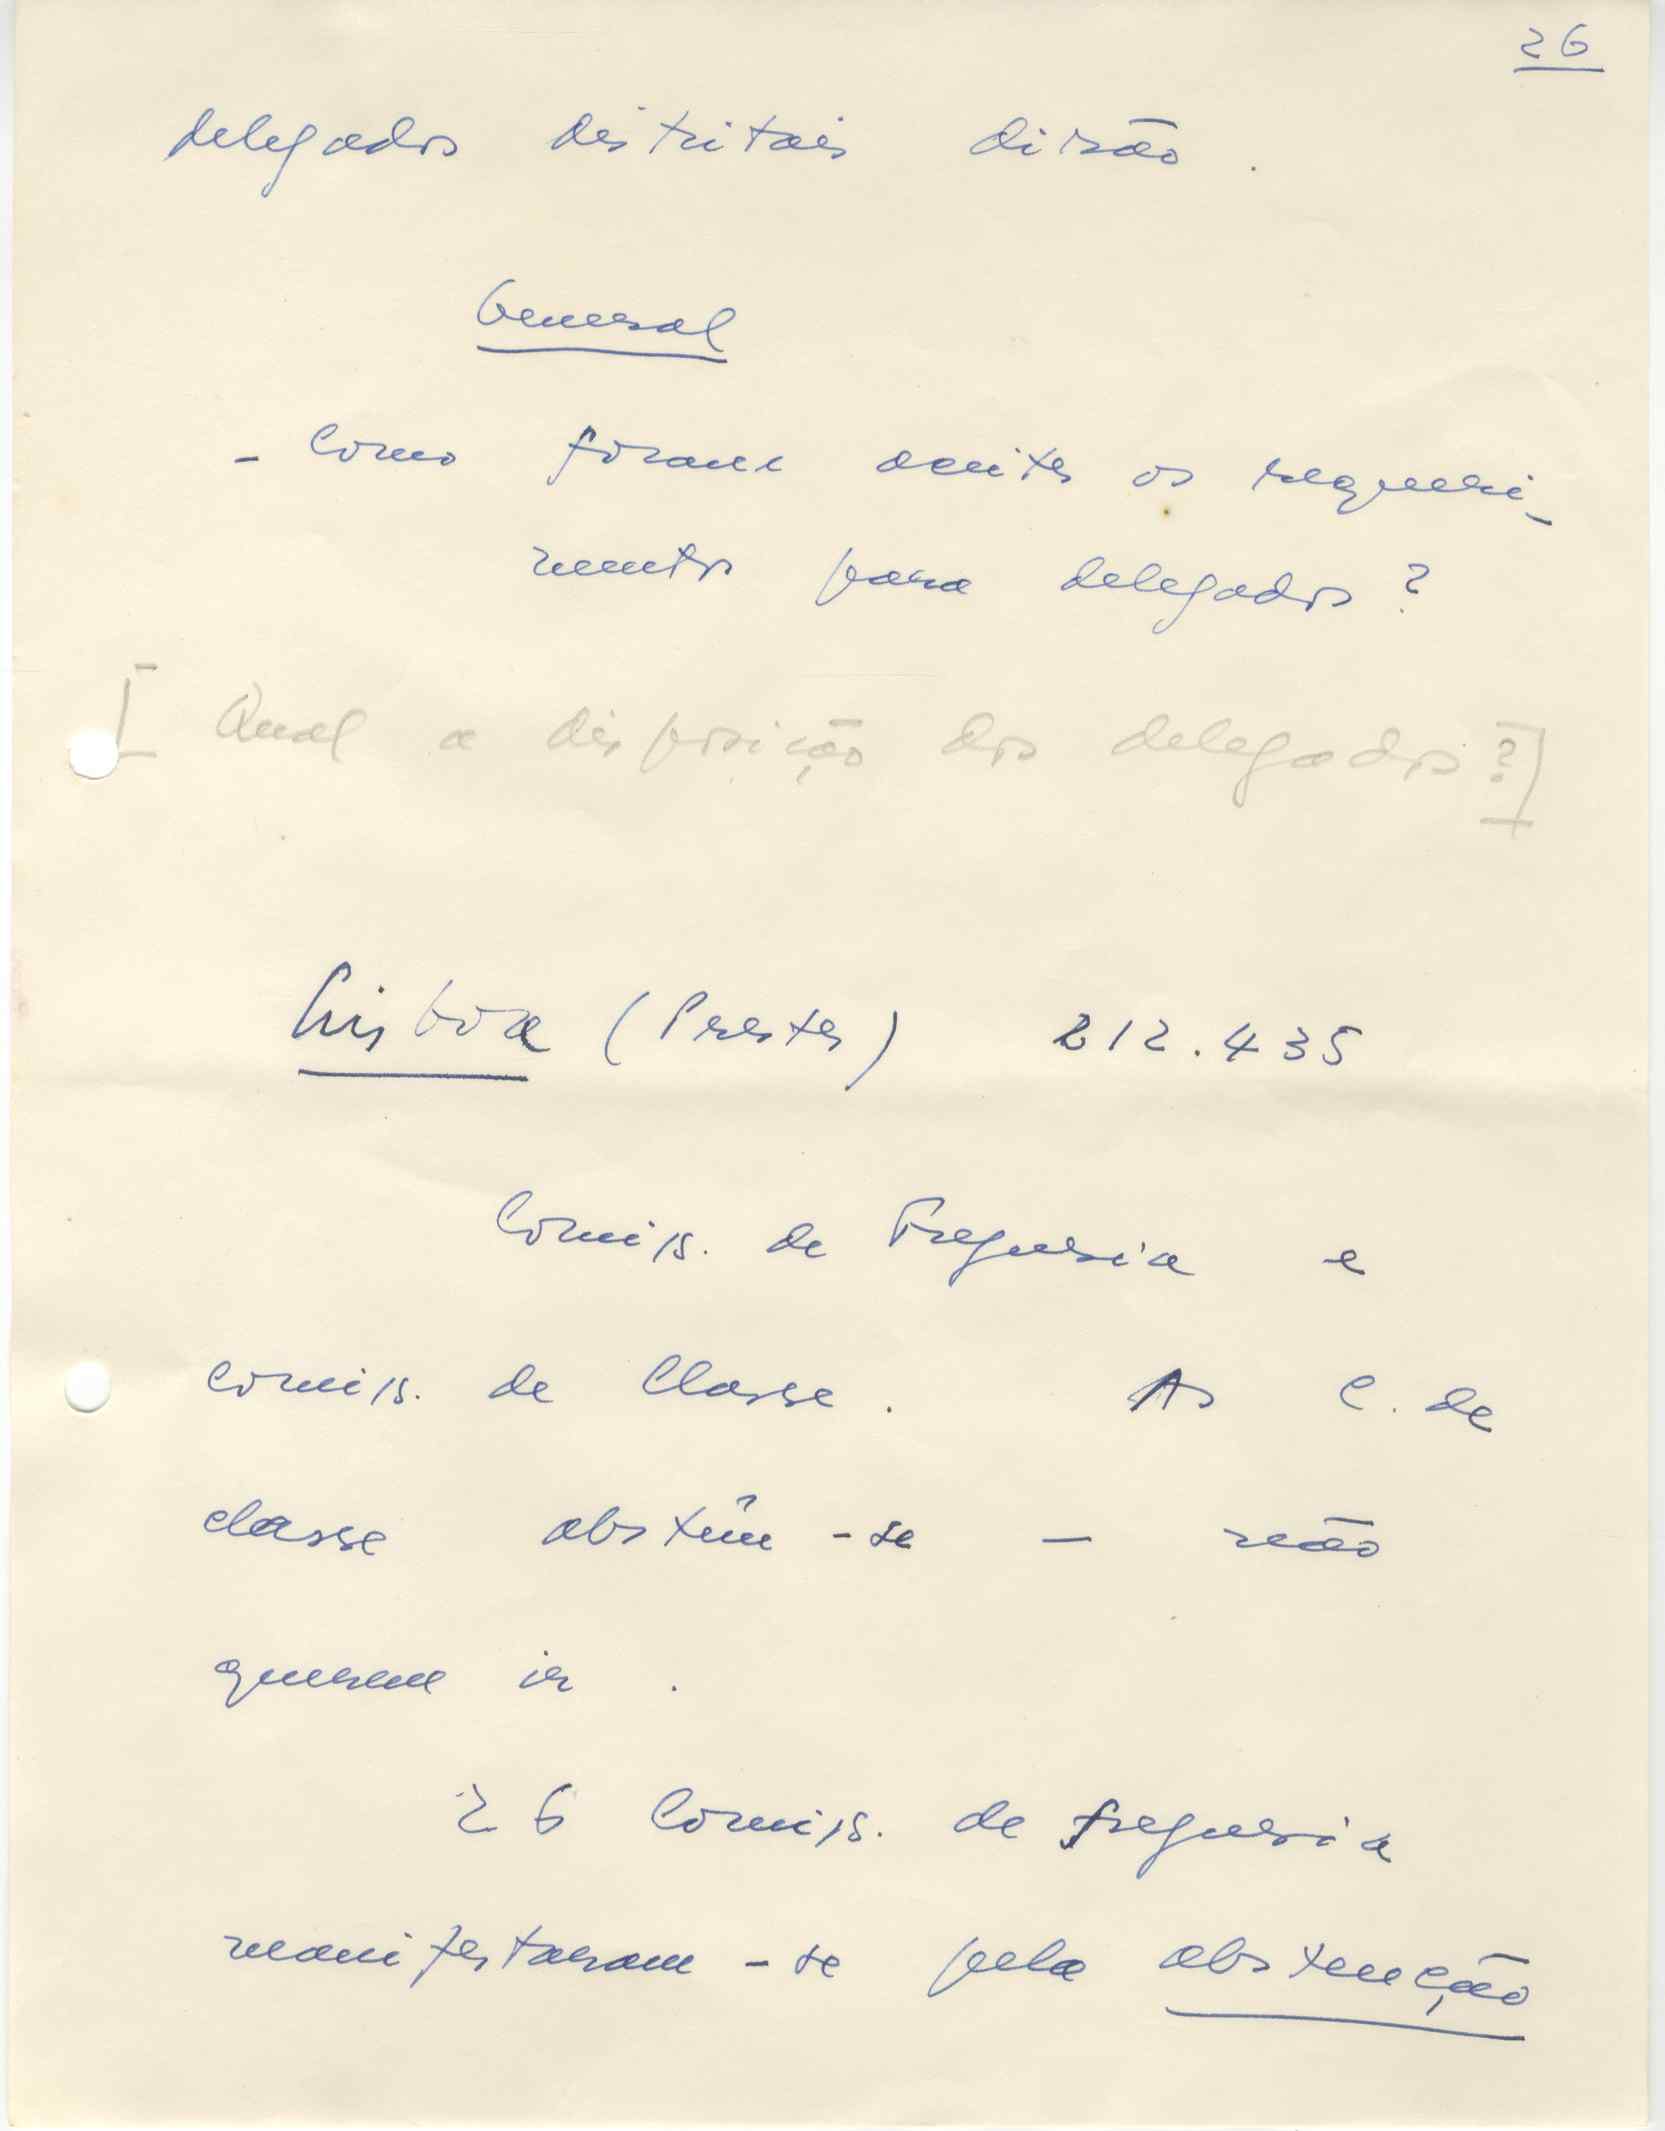 26
delegados distritais dirão.
General
- Como foram aceites os requeri-
mentos para delegados?
[Qual a disposição dos delegados?]
Lisboa (Prestes) 212.435
Comiss. de Freguesia e
comiss. de Classe. As C. de
classe abstêm-se - não
querem ir.
26 Comiss. de freguesia
manifestaram-se pela abstenção